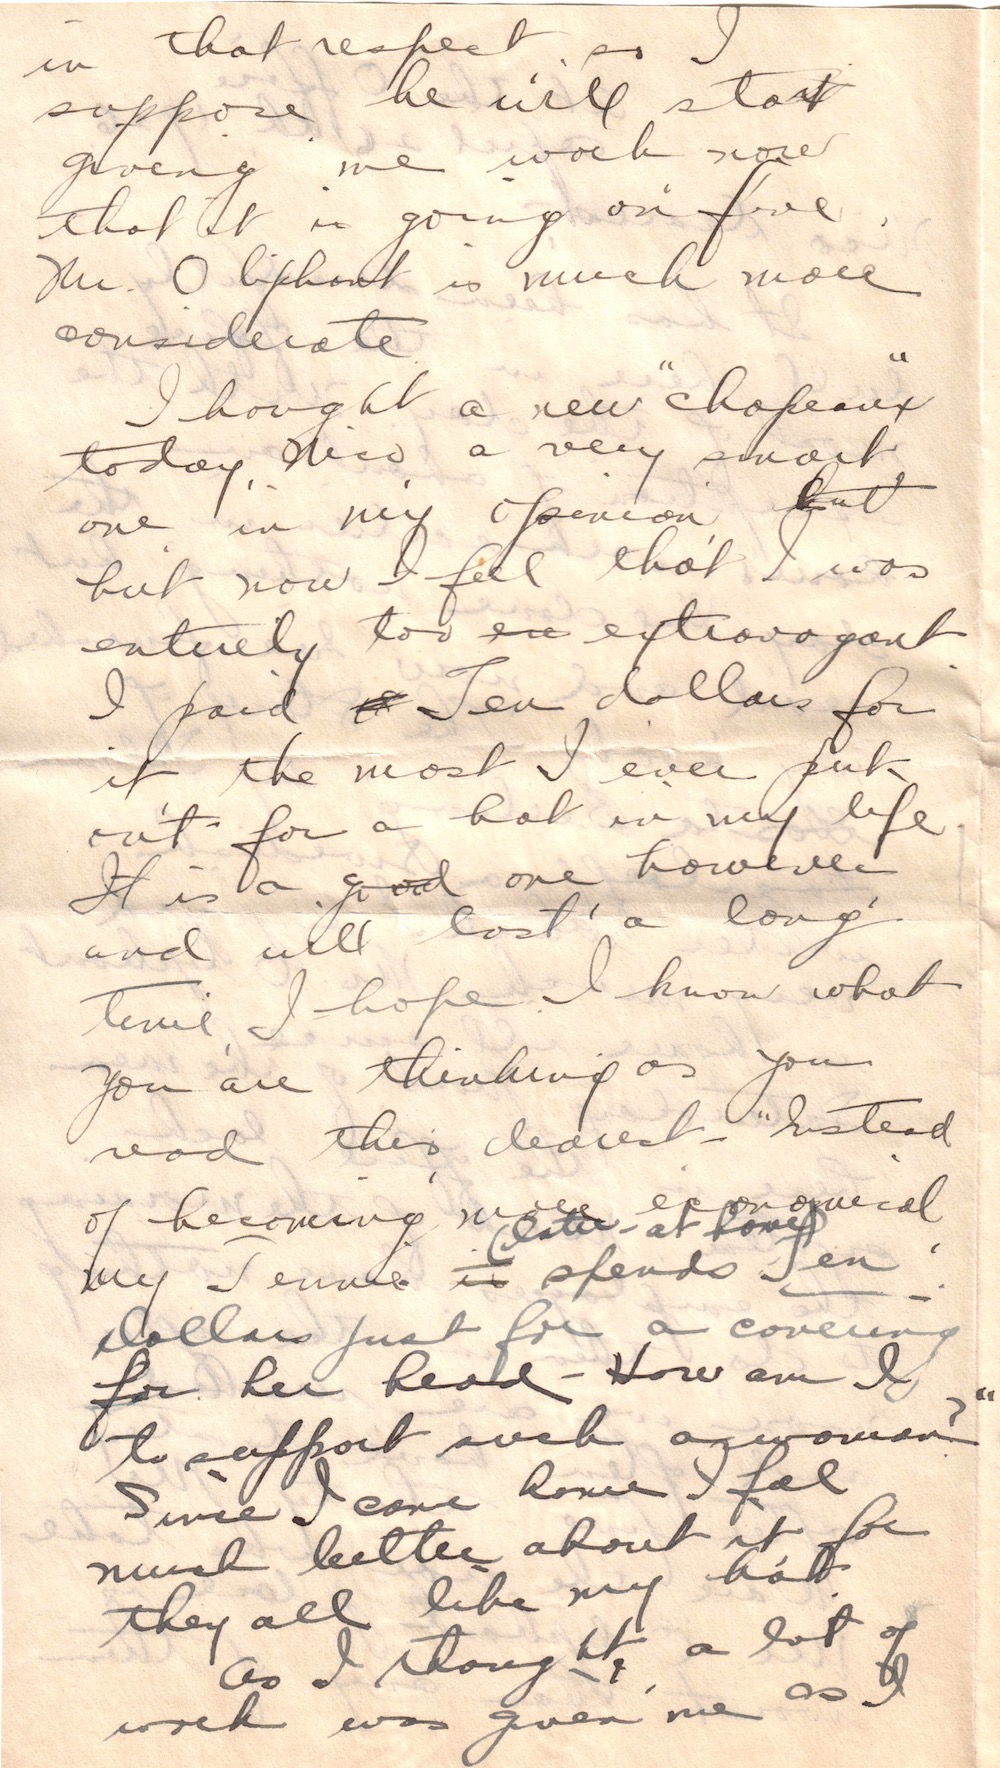 in that respect so I
suppose he will start
giving me work now
that it is going on five.
Mr. Oliphant is much more
considerate.
I bought a new "chapeaux"
today Nico a very smart
one in my opinion but
but now I feel that I was
entirely too ex extravagant.
I paid Ten dollars for
it the most I ever put
out for a hat in my life.
It is a good one however
and will last a long
time, I hope. I know what
you are thinking as you
read this, dearest - "Instead
of becoming more economical
(later - at home)
my Jennie is spends Ten
dollars just for a covering
for her head - How am I
to support such a woman?"
Since I came home I feel
much better about it for
they all like my hat.
As I thought, a lot of
work was given me as I